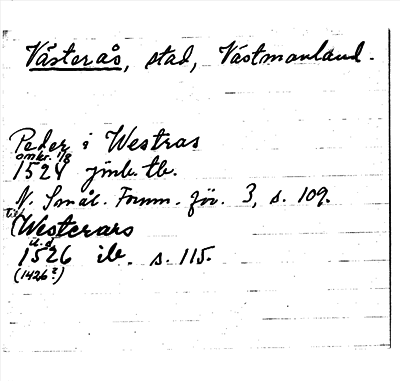 Västerås, stad, Västmanland.
Peder i Westras
omkr. 1/8
1524 jmb. tb.
N. Smål. Fornm. för. 3, s. 109.
(Westerars
u.d.
1526 ib. s. 115.
(1426?)